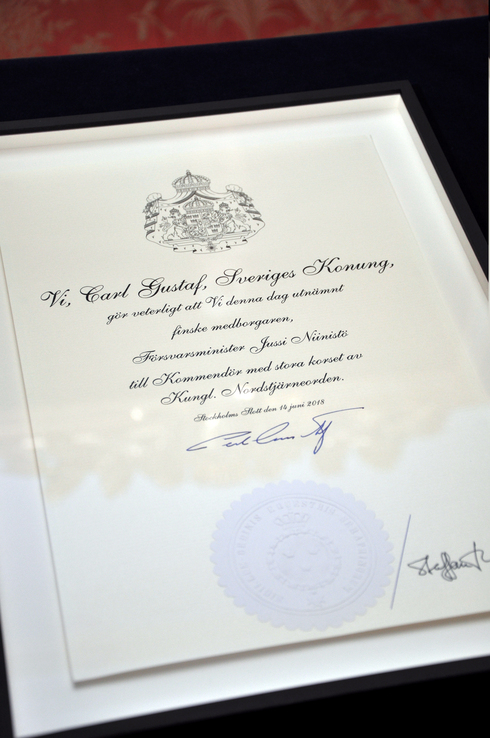 Vi, Carl Gustaf, Sveriges Konung,
gör veterligt att Vi denna dag utnämnt
finske medborgaren,
Försvarsminister Jussi Niinistö
till Kommendör med stora korset av
Kungl. Nordstjärneorden.
Stockholms Slott den 14 juni 2018